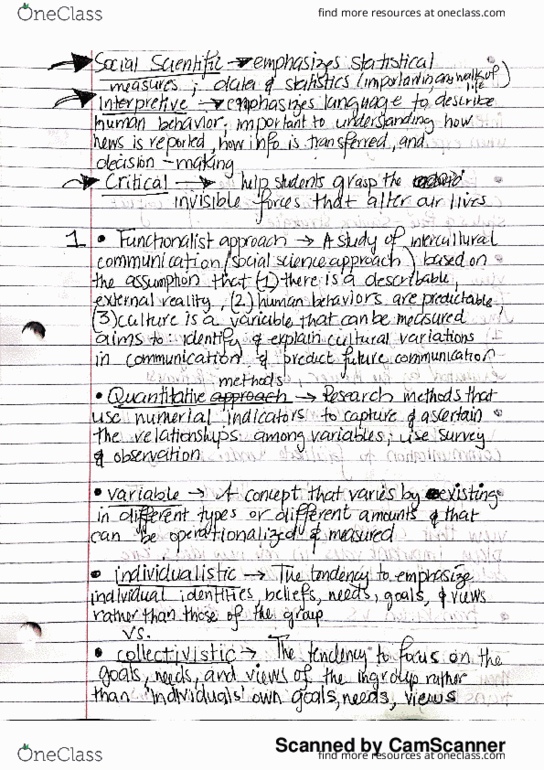 OneClass
find more resources at oneclass.com
Social Scientific → emphasizes statistical
measures; data & statistics (important in any walk of life)
Interpretive → emphasizes language to describe
human behavior; important to understanding how
news is reported, how info is transferred, and
decision-making
Critical → help students grasp the
invisible forces that alter our lives
1 • Functionalist approach → A study of intercultural
communication (social science approach) based on
the assumption that (1) there is a describable,
external reality, (2) human behaviors are predictable
(3) culture is a variable that can be measured
aims to: identify & explain cultural variations
in communication & predict future communication
methods
• Quantitative approach → Research methods that
use numerial indicators to capture & ascertain
the relationships among variables; use survey
& observation
• variable → A concept that varies by existing
in different types or different amounts & that
can be operationalized & measured
• individualistic → The tendency to emphasize
individual identities, beliefs, needs, goals, & views
rather than those of the group
vs.
• collectivistic → The tendency to focus on the
goals, needs, and views of the ingroup rather
than individuals' own goals, needs, views
Scanned by CamScanner
OneClass
find more resources at oneclass.com